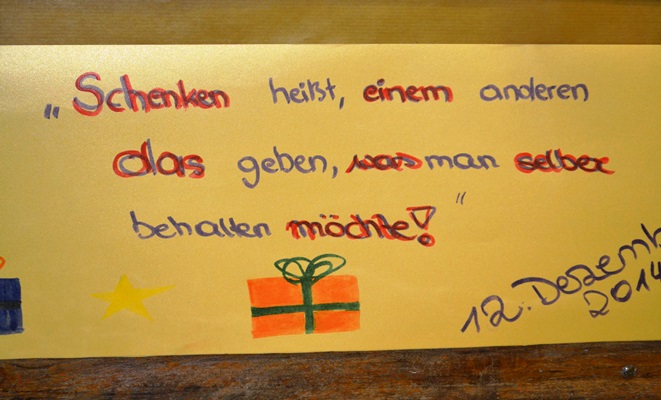 „Schenken heißt, einem anderen
das geben, was man selber
behalten möchte!"
12. Dezemb
2014